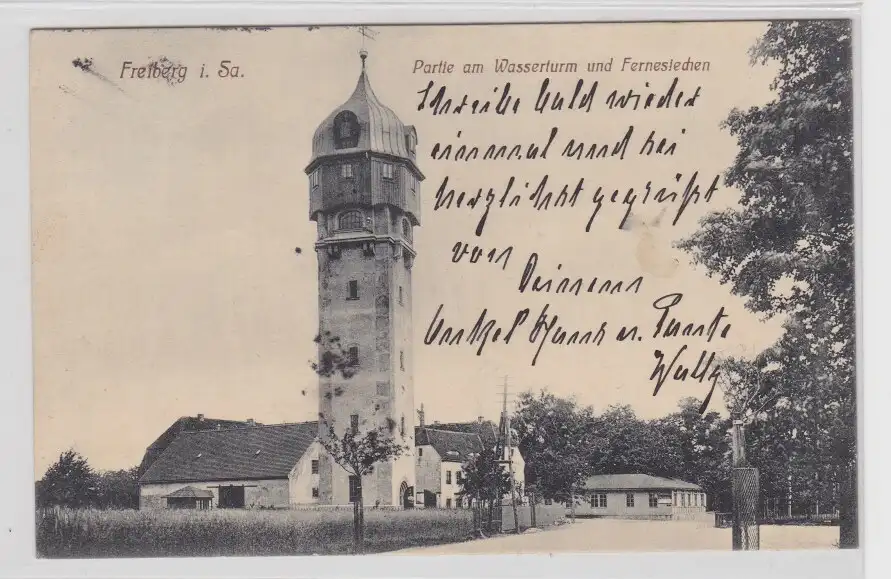 Freiberg i. Sa.
Partie am Wasserturm und Fernesiechen
Schreibe bald wieder
einmal und sei
herzlichst gegrüßt
von
Deinem
Onkel Hans u. Tante
Wally